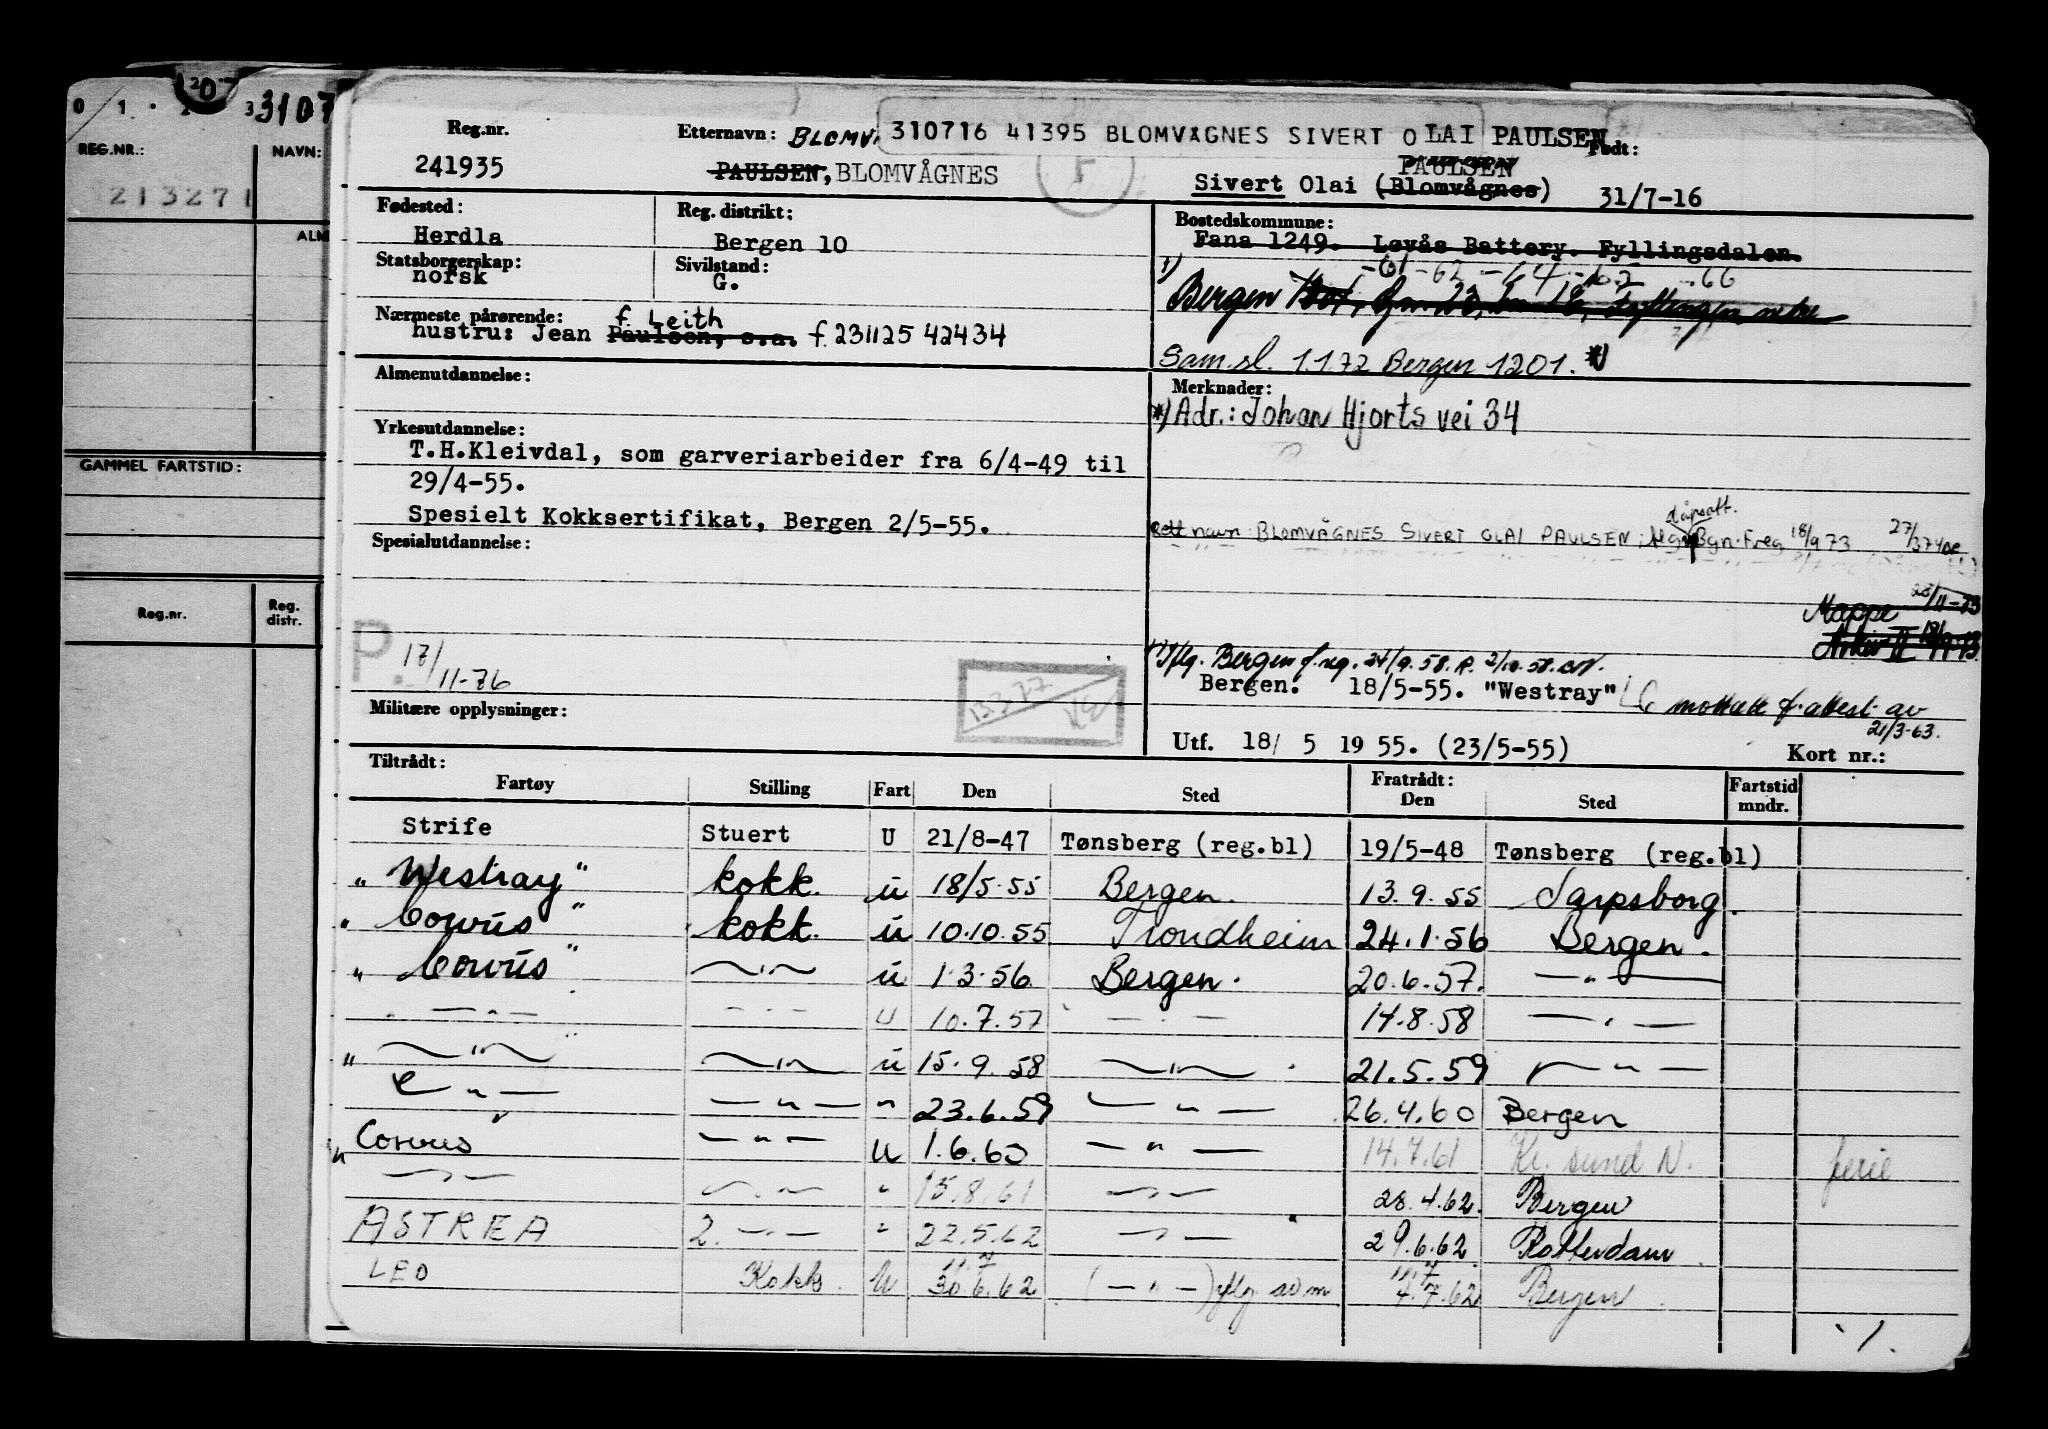 0 1 20 3 3107
REG.NR.: NAVN:
213271
ALM
GAMMEL FARTSTID:
Reg.nr. Reg. distr.
Reg.nr. Etternavn: BLOMV 310716 41395 BLOMVÅGNES SIVERT OLAI PAULSEN Født:
241935 PAULSEN, BLOMVÅGNES F Sivert Olai (Blomvågnes) PAULSEN 31/7-16
Fødested: Reg. distrikt: Bostedskommune:
Herdla Bergen 10 Fana 1249. Løvås Battery. Fyllingsdalen.
Statsborgerskap: Sivilstand: 1) -61 -62 -64 -65 -66
norsk G. Bergen
Nærmeste pårørende: f. Leith
hustru: Jean Paulsen, s.a. f 231125 42434
Sam.sl. 1.1.72 Bergen 1201. *)
Almenutdannelse: Merknader:
*) Adr.: Johan Hjorts vei 34
Yrkesutdannelse:
T.H.Kleivdal, som garveriarbeider fra 6/4-49 til
29/4-55.
Spesielt Kokksertifikat, Bergen 2/5-55.
dåpsatt.
Rett navn: BLOMVÅGNES SIVERT OLAI PAULSEN Bgn.Freg 18/9 73 27/3 74
Spesialutdannelse:
Mappe 28/11-73
Arkiv II
P. 17/11-76
13.3.77
1) Iflg. Bergen f.reg. 24/9.58. P. 2/10.58.
Bergen. 18/5-55. "Westray" mottatt f. attest av 21/3-63.
Militære opplysninger:
Utf. 18/ 5 19 55. (23/5-55) Kort nr.:
Tiltrådt: Fratrådt:
Fartøy Stilling Fart Den Sted Den Sted Fartstid mndr.
Strife Stuert U 21/8-47 Tønsberg (reg.bl) 19/5-48 Tønsberg (reg.bl)
" Westray " kokk. u 18/5-55 Bergen. 13.9.55 Sarpsborg.
" Corvus " kokk. u 10.10.55 Trondheim 24.1.56 Bergen.
" Corvus " — " — u 1.3.56 Bergen. 20.6.57. — " —
" — " — — " — u 10.7.57 — " — 14.8.58 — " —
" — " — — " — u 15.9.58 — " — 21.5.59 — " —
— " — — " — " 23.6.59 — " — 26.4.60 Bergen
" Corvus — " — u 1.6.60 — " — 14.7.61 Kr. sund N. ferie
— " — — " — " 15.8.61 — " — 28.4.62. Bergen
ASTREA 2. — " — " 22.5.62 — " — 29.6.62 Rotterdam
LEO Kokk U 11.7 30.6.62 ( — " — ) 11.7 4.7.62 Bergen